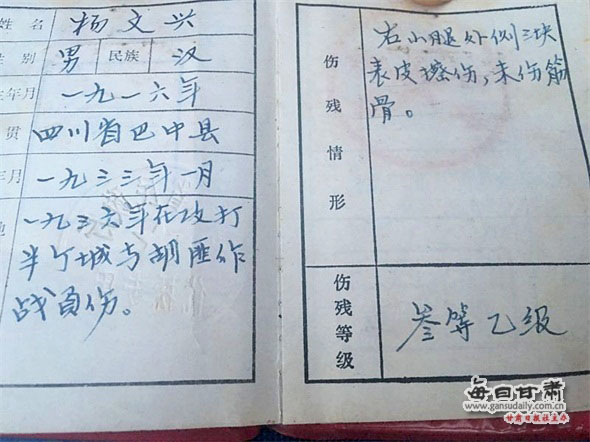 姓名 杨文兴
性别 男 民族 汉
生年月 一九一六年
贯 四川省巴中县
年月 一九三三年一月
一九三六年在攻打
半个城与胡匪作
战负伤。
伤残情形
右小腿外侧三块
表皮擦伤，未伤筋
骨。
伤残等级
叁等乙级
每日甘肃
www.gansudaily.com.cn
甘肃日报社主办